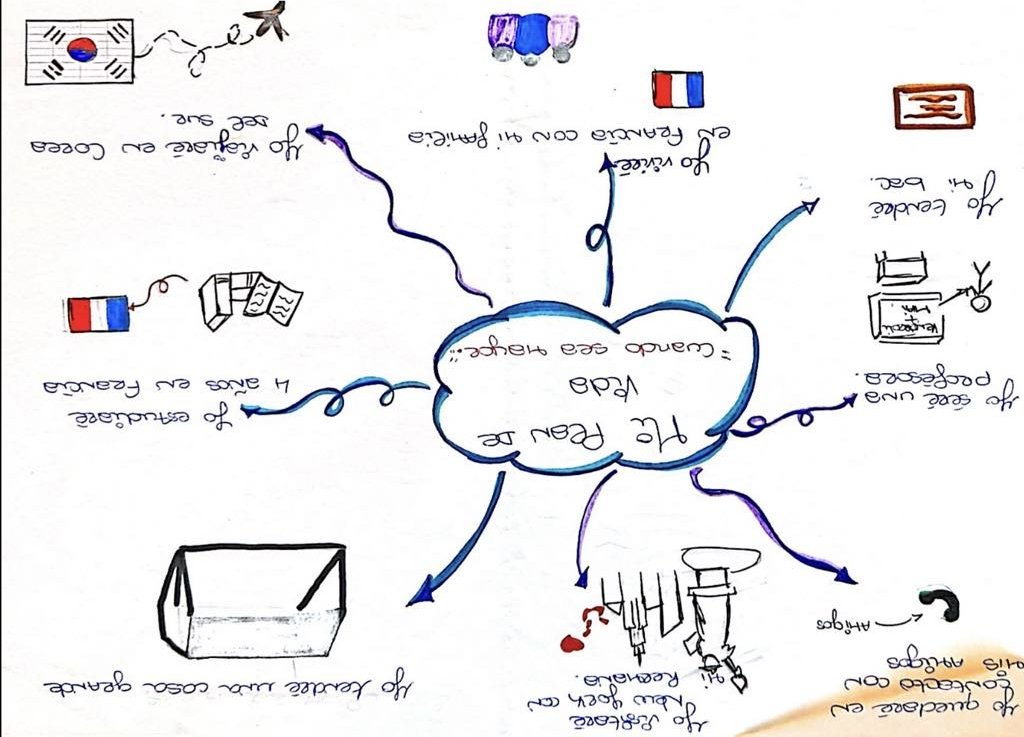 Yo quedaré en
contacto con
mis amigos
Amigos
Yo visitaré
New York con
mi hermana.
Yo tendré una casa grande
Yo seré una
profesora.
Mi Plan de
Vida
"Cuando sea mayor..."
Yo estudiaré
4 años en Francia
Yo tendré
mi bac.
Yo viviré
en Francia con mi familia
Yo viajaré en Corea
del sur.